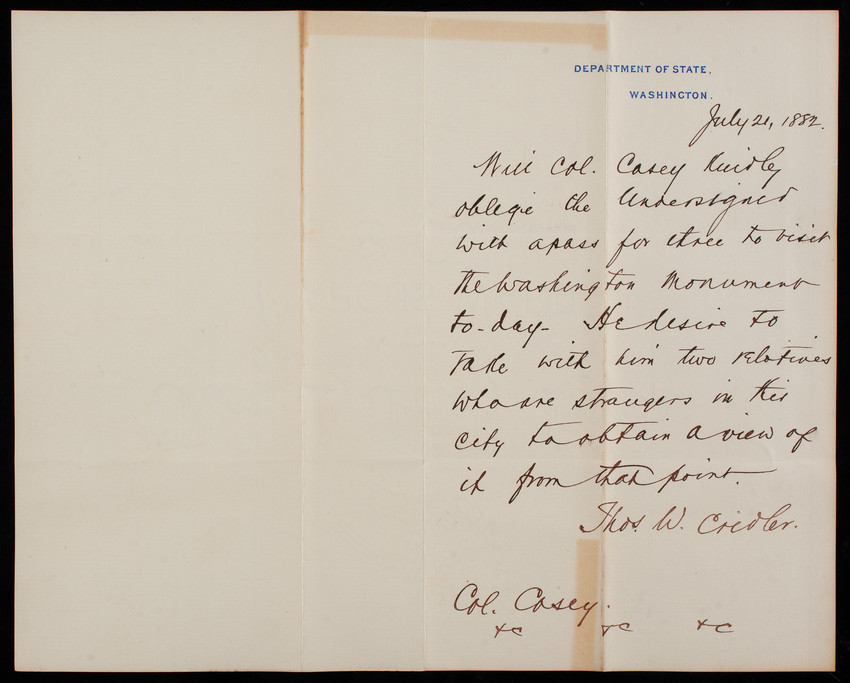 DEPARTMENT OF STATE,
WASHINGTON.
July 21, 1882.
Will Col. Casey kindly
oblige the Undersigned
with a pass for three to visit
the Washington Monument
to-day- He desire to
take with him two relatives
who are strangers in this
city to obtain a view of
it from that point.
Thos. W. Cridler.
Col. Casey.
&c &c &c